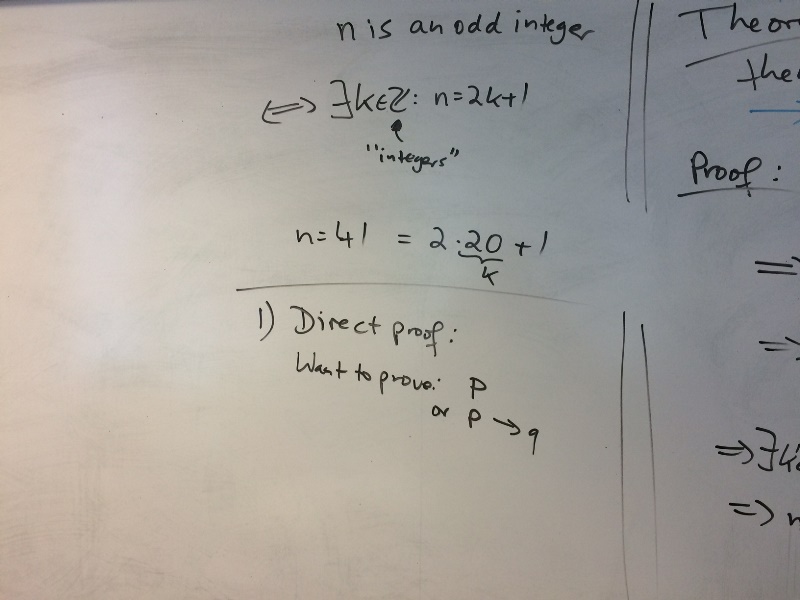 n is an odd integer
⟺ ∃k∈ℤ: n=2k+1
"integers"
n=41 = 2·20+1
k
1) Direct proof:
Want to prove: p
or p → q
Theor
the
Proof:
⇒
⇒
⇒ ∃k
⇒ n